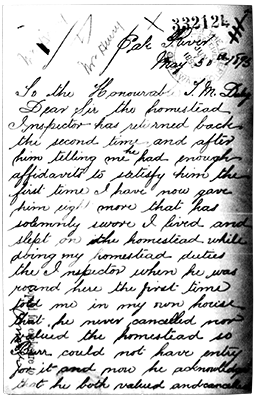 332124
Oak River
May 3
To the Honourable T. M. Daly
Dear Sir the homestead
Inspector has returned back
the second time and after
him telling me he had enough
affidavits to satisfy him the
first time I have now gave
him eight more that has
solemnly swore I lived and
slept on the homestead while
doing my homestead duties
the Inspector when he was
round here the first time
told me in my own house
that he never cancelled nor
valued the homestead so
could not have entry
for it and now he acknowledg
that he both valued and cancelled